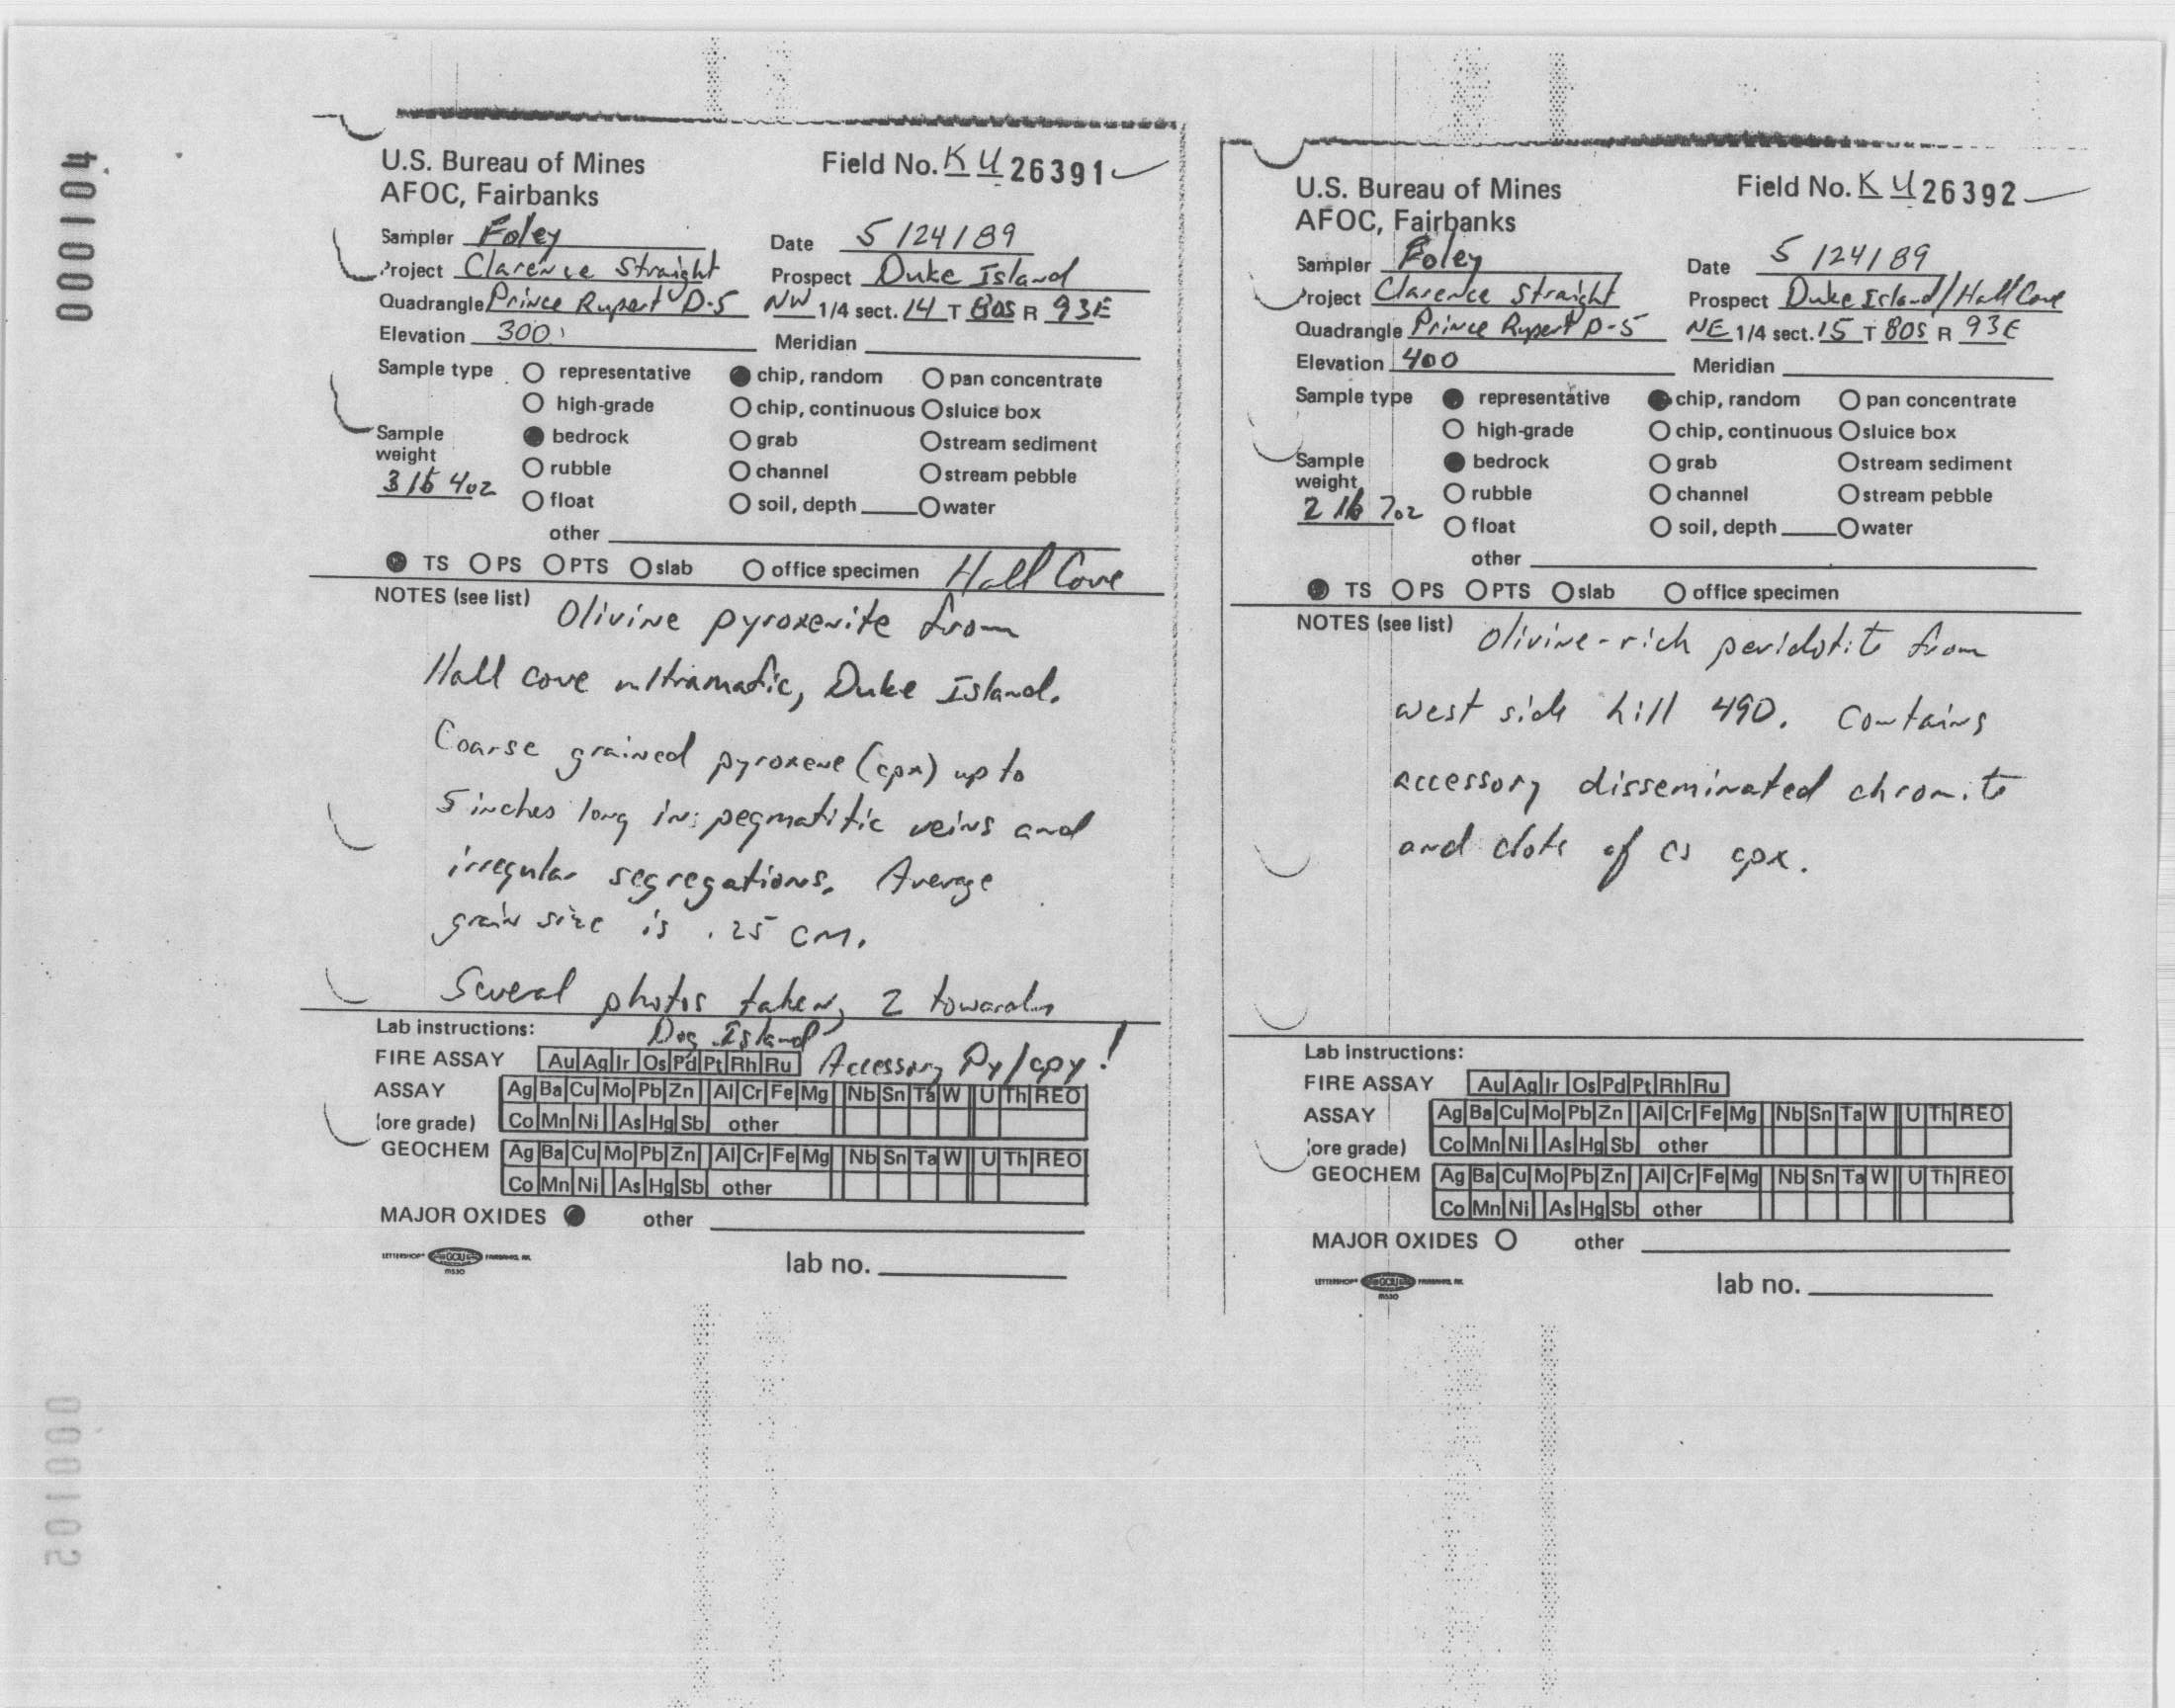 000104
U.S. Bureau of Mines
AFOC, Fairbanks
Field No. K U 26391
Sampler Foley
Date 5/24/89
Project Clarence Straight
Prospect Duke Island
Quadrangle Prince Rupert D-5 NW 1/4 sect. 14 T 80S R 93E
Elevation 300' Meridian
Sample type representative chip, random pan concentrate
high-grade chip, continuous sluice box
Sample weight bedrock grab stream sediment
3 lb 4oz rubble channel stream pebble
float soil, depth water
other
TS PS PTS slab office specimen Hall Cove
NOTES (see list) Olivine pyroxenite from
Hall cove ultramafic, Duke Island.
Coarse grained pyroxene (cpx) up to
5 inches long in pegmatitic veins and
irregular segregations. Average
grain size is .25 cm.
Several photos taken, 2 towards
Lab instructions: Dog Island
FIRE ASSAY Au Ag Ir Os Pd Pt Rh Ru Accessory Py/cpy!
ASSAY Ag Ba Cu Mo Pb Zn Al Cr Fe Mg Nb Sn Ta W U Th REO
(ore grade) Co Mn Ni As Hg Sb other
GEOCHEM Ag Ba Cu Mo Pb Zn Al Cr Fe Mg Nb Sn Ta W U Th REO
Co Mn Ni As Hg Sb other
MAJOR OXIDES other
lab no.
U.S. Bureau of Mines
AFOC, Fairbanks
Field No. K U 26392
Sampler Foley
Date 5/24/89
Project Clarence Straight
Prospect Duke Island/Hall Cove
Quadrangle Prince Rupert D-5 NE 1/4 sect. 15 T 80S R 93E
Elevation 400 Meridian
Sample type representative chip, random pan concentrate
high-grade chip, continuous sluice box
Sample weight bedrock grab stream sediment
2 lb 7oz rubble channel stream pebble
float soil, depth water
other
TS PS PTS slab office specimen
NOTES (see list) Olivine-rich peridotite from
west side hill 490. Contains
accessory disseminated chromite
and clots of cs cpx.
Lab instructions:
FIRE ASSAY Au Ag Ir Os Pd Pt Rh Ru
ASSAY Ag Ba Cu Mo Pb Zn Al Cr Fe Mg Nb Sn Ta W U Th REO
(ore grade) Co Mn Ni As Hg Sb other
GEOCHEM Ag Ba Cu Mo Pb Zn Al Cr Fe Mg Nb Sn Ta W U Th REO
Co Mn Ni As Hg Sb other
MAJOR OXIDES other
lab no.
000102